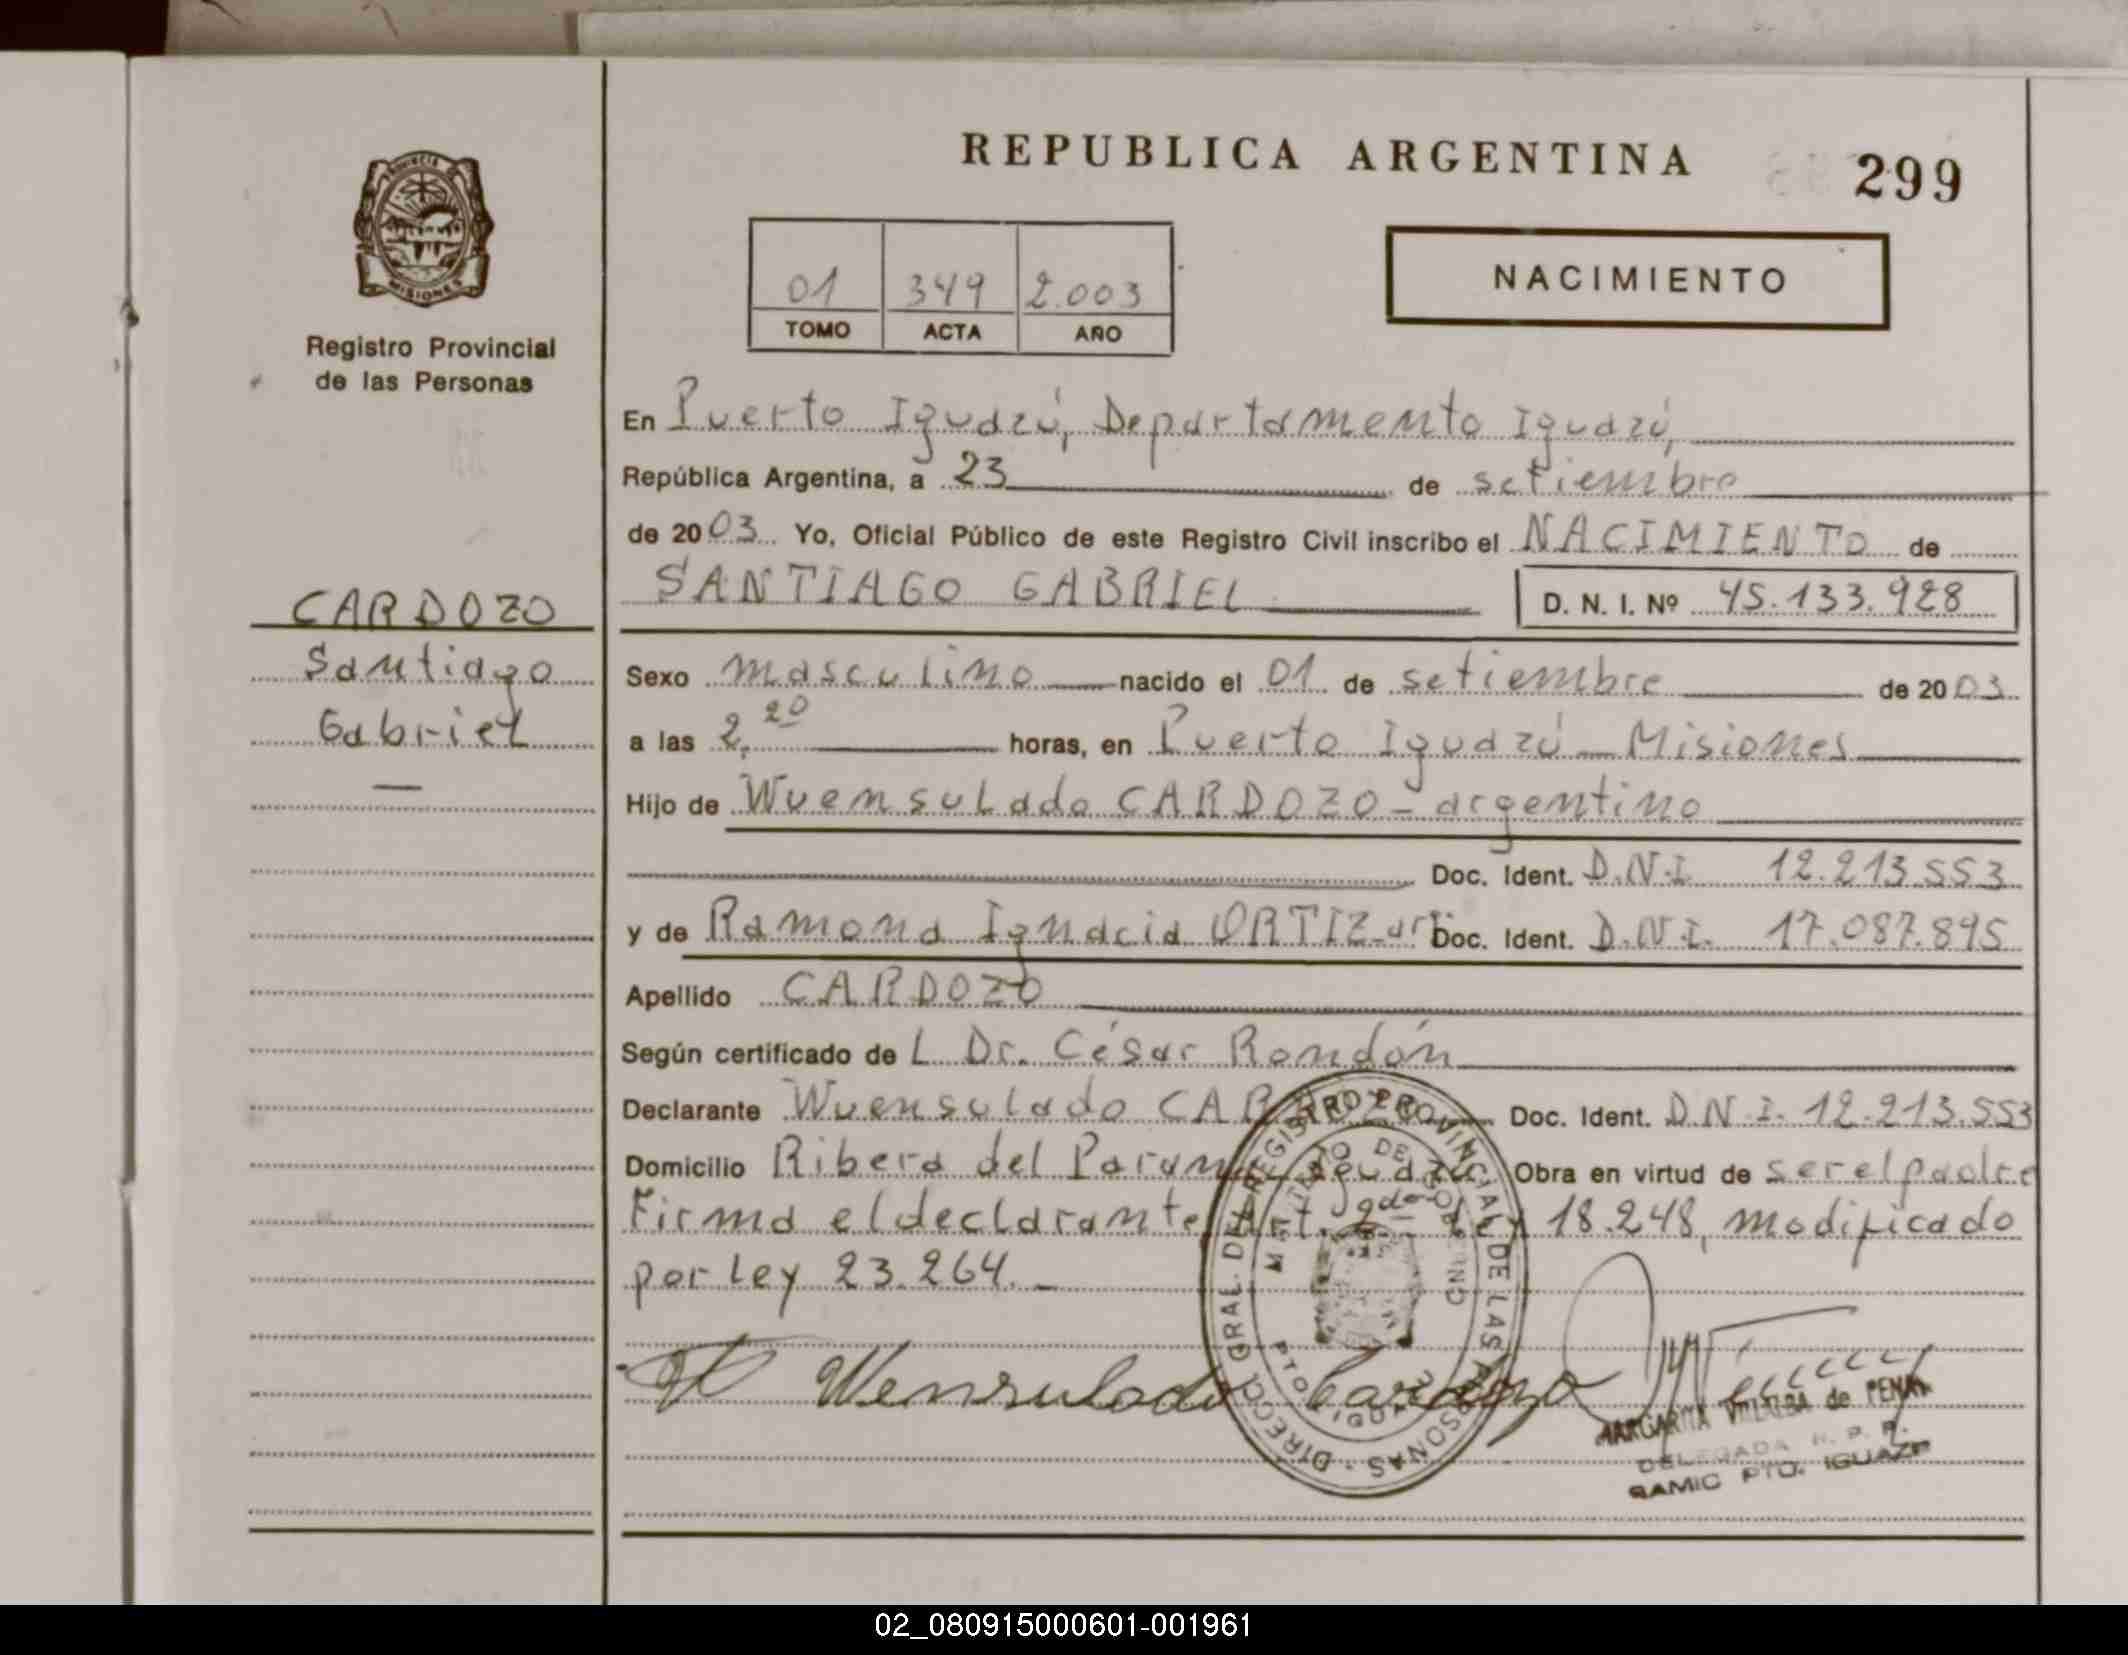 REPUBLICA ARGENTINA
299
PROVINCIA
MISIONES
Registro Provincial
de las Personas
01 349 2.003
TOMO ACTA AÑO
NACIMIENTO
En Puerto Iguazú, Departamento Iguazú,
República Argentina, a 23 de setiembre
de 2003 Yo, Oficial Público de este Registro Civil inscribo el NACIMIENTO de
SANTIAGO GABRIEL D. N. I. Nº 45.133.928
CARDOZO
Santiago
Gabriel
Sexo masculino nacido el 01 de setiembre de 2003
a las 2.20 horas, en Puerto Iguazú - Misiones
Hijo de Wuensulado CARDOZO - argentino
Doc. Ident. D.N.I. 12.213.553
y de Ramona Ignacia ORTIZ - arg Doc. Ident. D.N.I. 17.087.895
Apellido CARDOZO
Según certificado de L Dr. César Rondón
Declarante Wuensulado CARDOZO Doc. Ident. D.N.I. 12.213.553
Domicilio Ribera del Paraná Iguazú Obra en virtud de ser el padre
Firma el declarante Art. 2do Ley 18.248, modificado
por Ley 23.264.-
Wensulado Cardozo
DIRECC. GRAL. DEL REGISTRO PROVINCIAL DE LAS PERSONAS
MINISTERIO DE GOBIERNO
PTO. IGUAZU
MARGARITA VILLALBA de PENA
DELEGADA R. P. P.
SAMIC PTO. IGUAZU
02_080915000601-001961